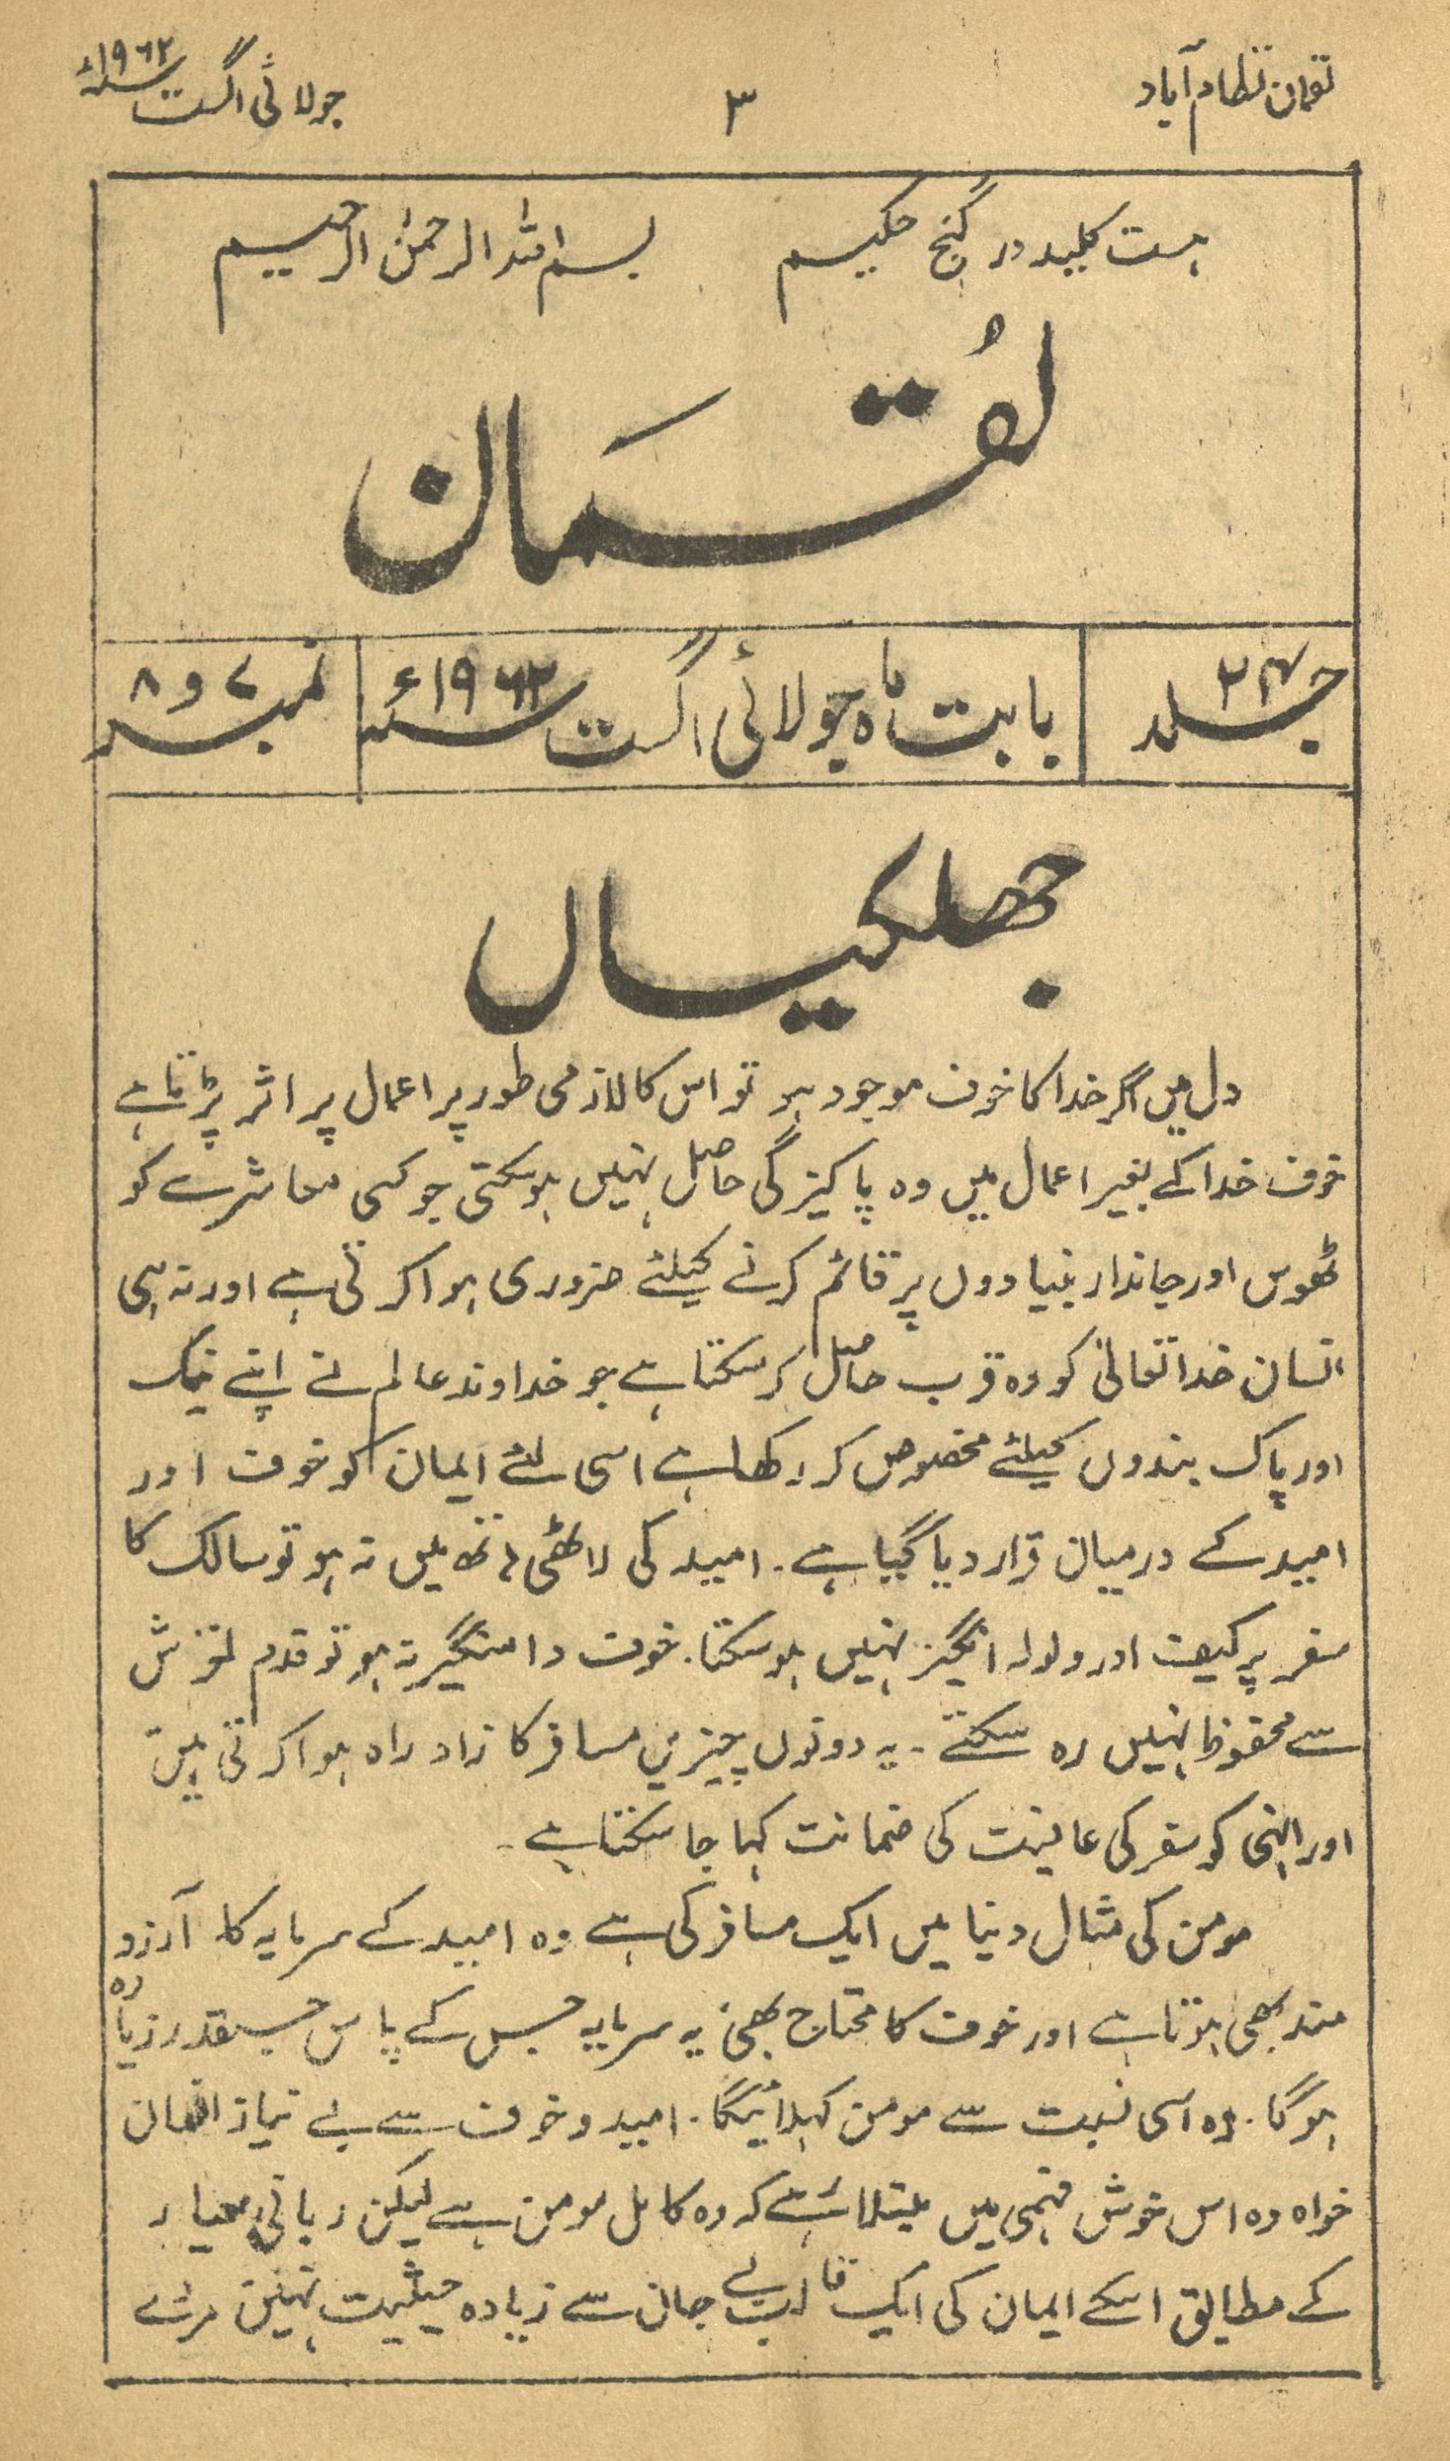 لقمان نظام آباد
۳
جولائی اگست ۱۹۶۲ء
ہست کلید در گنج حکیم بسم اللہ الرحمٰن الرحیم
لُقمان
جلد ۲۴
بابت ماہ جولائی اگست ۱۹۶۲ء
نمبر ۷ و ۸
جھلکیاں
دل میں اگر خدا کا خوف موجود ہو تو اس کا لازمی طور پر اعمال پر اثر پڑتا ہے
خوف خدا کے بغیر اعمال میں وہ پاکیزگی حاصل نہیں ہو سکتی جو کسی معاشرے کو
ٹھوس اور جاندار بنیادوں پر قائم کرنے کیلئے ضروری ہوا کرتی ہے اور نہ ہی
انسان خدا تعالیٰ کو وہ قرب حاصل کر سکتا ہے جو خداوند عالم نے اپنے نیک
اور پاک بندوں کیلئے مخصوص کر رکھا ہے اسی لئے ایمان کو خوف اور
امید کے درمیان قرار دیا گیا ہے۔ امید کی لاٹھی ہاتھ میں نہ ہو تو سالک کا
سفر پرکیف اور ولولہ انگیز نہیں ہو سکتا۔ خوف دامنگیر نہ ہو تو قدم لغزش
سے محفوظ نہیں رہ سکتے۔ یہ دونوں چیزیں مسافر کا زاد راہ ہوا کرتی ہیں
اور انہی کو سفر کی عافیت کی ضمانت کہا جا سکتا ہے۔
مومن کی مثال دنیا میں ایک مسافر کی ہے وہ امید کے سرمایہ کا آرزو
مند بھی ہوتا ہے اور خوف کا محتاج بھی یہ سرمایہ جس کے پاس جسقدر زیادہ
ہوگا۔ وہ اسی نسبت سے مومن کہلائیگا۔ امید و خوف سے بے نیاز انسان
خواہ وہ اس خوش فہمی میں مبتلا رہے کہ وہ کامل مومن ہے لیکن ربانی معیار
کے مطابق اسکے ایمان کی ایک قالب بے جان سے زیادہ حیثیت نہیں